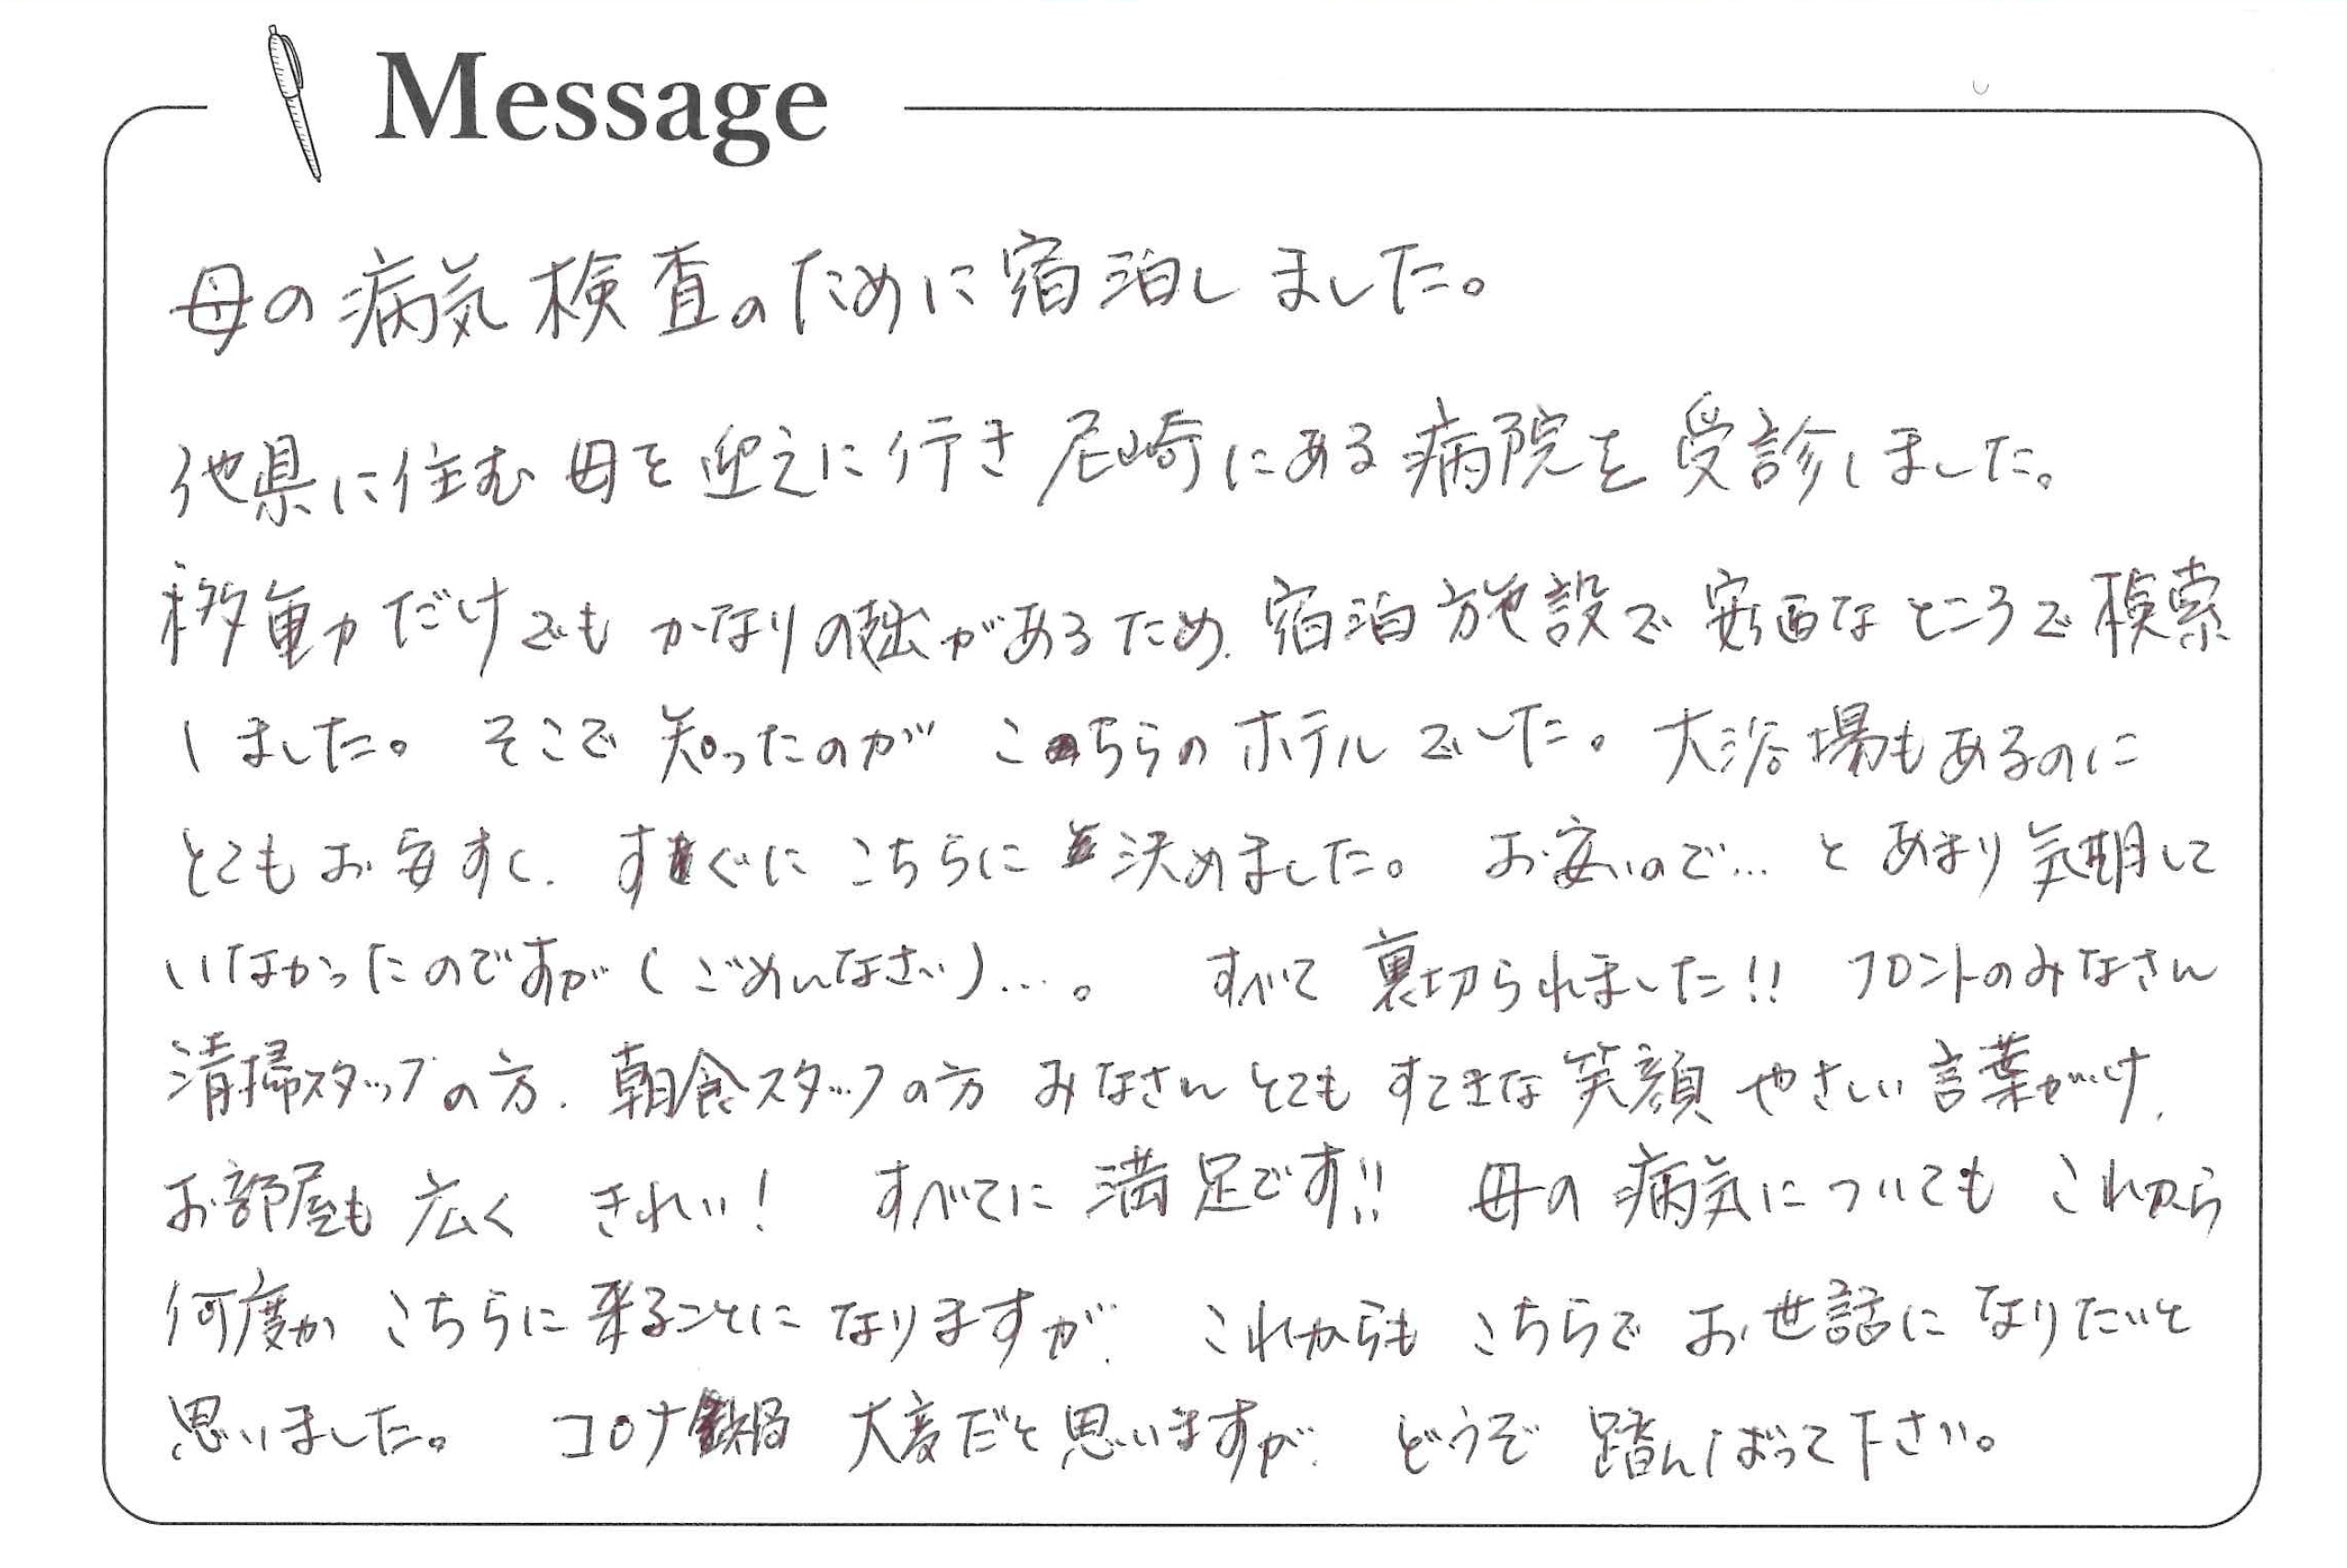 Message
母の病気検査のために宿泊しました。
他県に住む母を迎えに行き尼崎にある病院を受診しました。
移動だけでもかなりの出があるため、宿泊施設で安価なところで検索
しました。そこで知ったのがこちらのホテルでした。大浴場もあるのに
とてもお安すく、すぐにこちらに決めました。お安いので…とあまり期して
いなかったのですが(ごめんなさい)…。すべて裏切られました!!フロントのみなさん
清掃スタッフの方、朝食スタッフの方みなさんとてもすてきな笑顔やさしい言葉がけ、
お部屋も広くきれい!すべてに満足です!!母の病気についてもこれから
何度かこちらに来ることになりますが、これからもこちらでお世話になりたいと
思いました。コロナ禍大変だと思いますが、どうぞ踏んばって下さい。